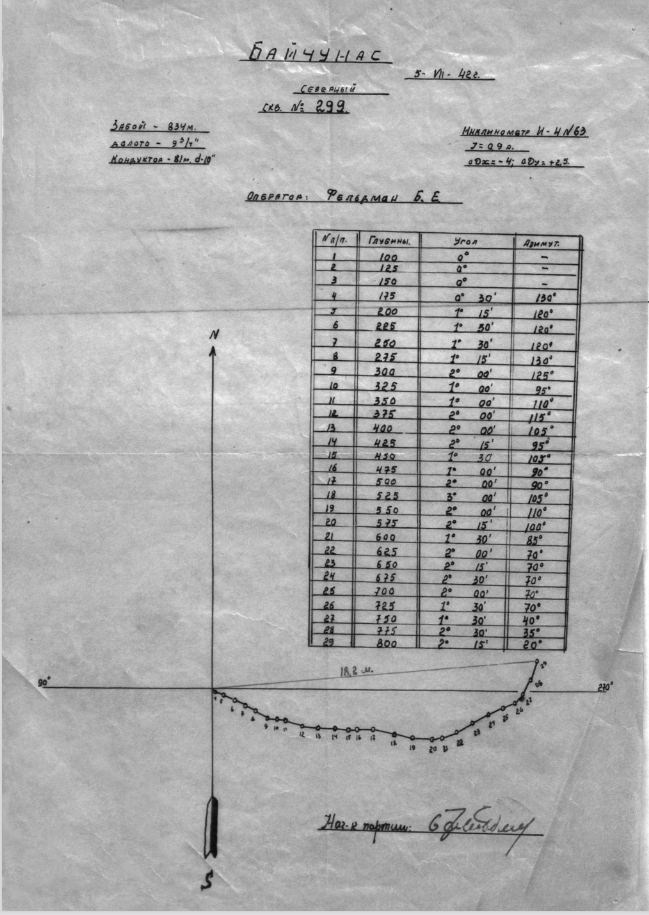 БАЙЧУНАС
5-VII-42г.
СЕВЕРНЫЙ
СКВ. № 299.
ЗАБОЙ - 834м.
ДОЛОТО - 9 3/4"
КОНДУКТОР - 81м. d-10"
ИНКЛИНОМЕТР И-4 №63
J=0.9а.
ΔX=-4; ΔY=+2,5.
ОПЕРАТОР: ФЕЛЬДМАН Б. Е
№ п/п. ГЛУБИНЫ. УГОЛ АЗИМУТ.
1 100 0° -
2 125 0° -
3 150 0° -
4 175 0° 30' 130°
5 200 1° 15' 120°
6 225 1° 30' 120°
7 250 1° 30' 120°
8 275 1° 15' 130°
9 300 2° 00' 125°
10 325 1° 00' 95°
11 350 1° 00' 110°
12 375 2° 00' 115°
13 400 2° 00' 105°
14 425 2° 15' 95°
15 450 1° 30 105°
16 475 1° 00' 90°
17 500 2° 00' 90°
18 525 3° 00' 105°
19 550 2° 00' 110°
20 575 2° 15' 100°
21 600 1° 30' 85°
22 625 2° 00' 70°
23 650 2° 15' 70°
24 675 2° 30' 70°
25 700 2° 00' 70°
26 725 1° 30' 70°
27 750 1° 30' 40°
28 775 2° 30' 35°
29 800 2° 15' 20°
N
18,2 м.
90°
270°
4 5 6 7 8 9 10 11 12 13 14 15 16 17 18 19 20 21 22 23 24 25 26 27 28 29
S
Нач-к партии: